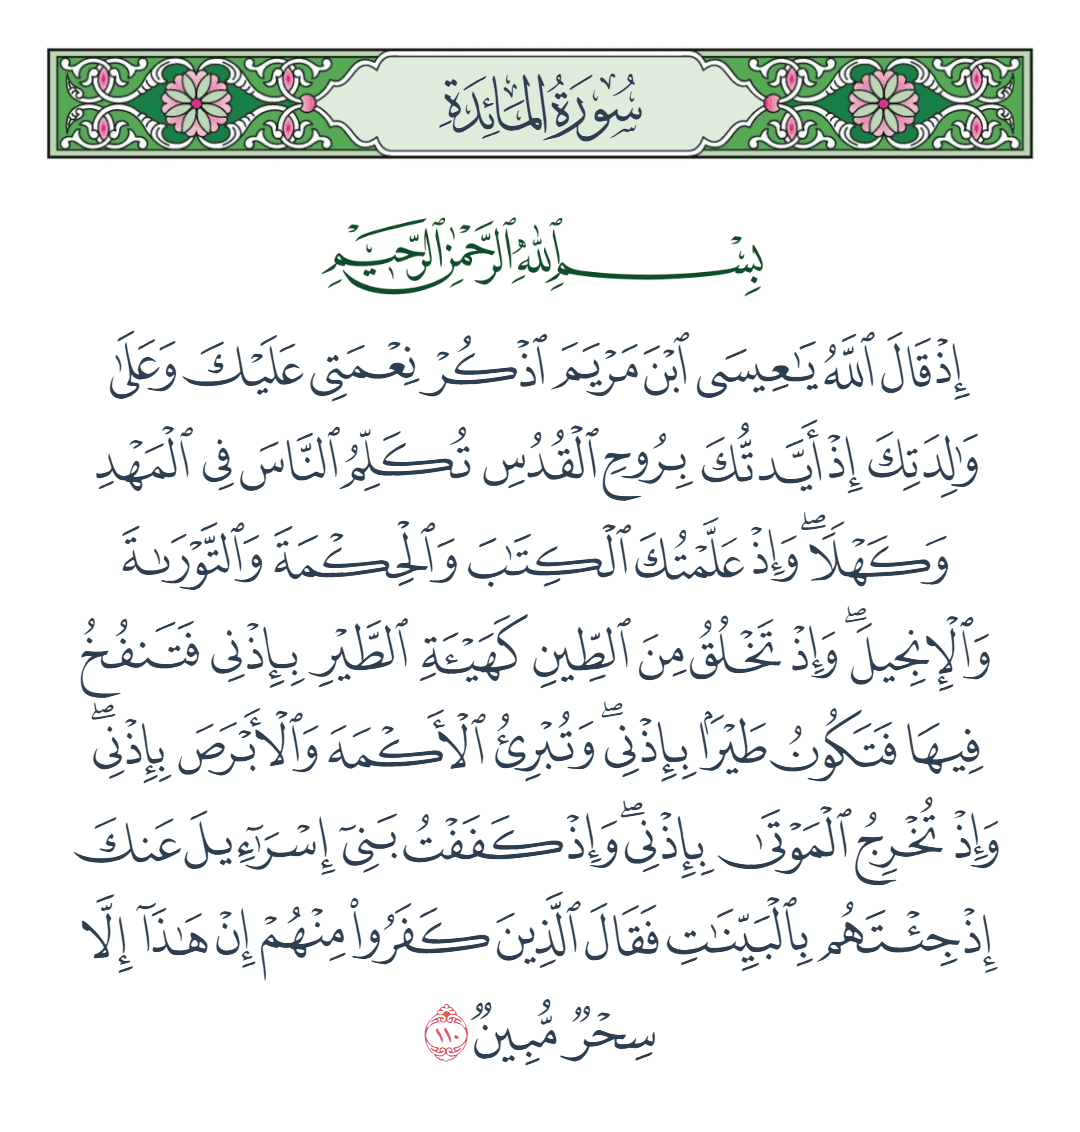 سُورَةُ المَائِدَةِ
بِسْمِ ٱللَّهِ ٱلرَّحْمَٰنِ ٱلرَّحِيمِ
إِذْ قَالَ ٱللَّهُ يَٰعِيسَى ٱبْنَ مَرْيَمَ ٱذْكُرْ نِعْمَتِى عَلَيْكَ وَعَلَىٰ
وَٰلِدَتِكَ إِذْ أَيَّدتُّكَ بِرُوحِ ٱلْقُدُسِ تُكَلِّمُ ٱلنَّاسَ فِى ٱلْمَهْدِ
وَكَهْلًا ۖ وَإِذْ عَلَّمْتُكَ ٱلْكِتَٰبَ وَٱلْحِكْمَةَ وَٱلتَّوْرَىٰةَ
وَٱلْإِنجِيلَ ۖ وَإِذْ تَخْلُقُ مِنَ ٱلطِّينِ كَهَيْـَٔةِ ٱلطَّيْرِ بِإِذْنِى فَتَنفُخُ
فِيهَا فَتَكُونُ طَيْرًۢا بِإِذْنِى ۖ وَتُبْرِئُ ٱلْأَكْمَهَ وَٱلْأَبْرَصَ بِإِذْنِى ۖ
وَإِذْ تُخْرِجُ ٱلْمَوْتَىٰ بِإِذْنِى ۖ وَإِذْ كَفَفْتُ بَنِىٓ إِسْرَٰٓءِيلَ عَنكَ
إِذْ جِئْتَهُم بِٱلْبَيِّنَٰتِ فَقَالَ ٱلَّذِينَ كَفَرُوا۟ مِنْهُمْ إِنْ هَٰذَآ إِلَّا
سِحْرٌ مُّبِينٌ ١١٠